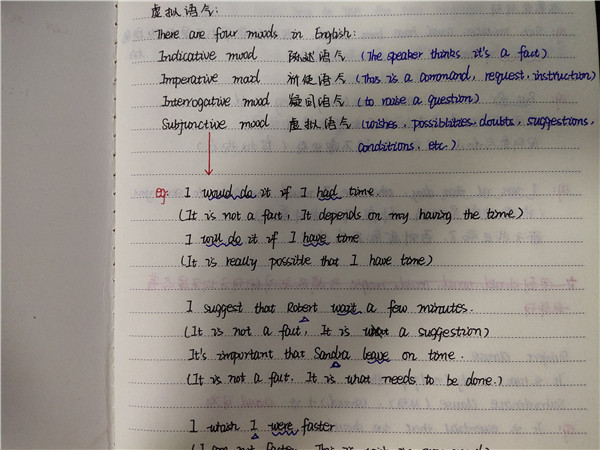 虚拟语气:
There are four moods in English:
Indicative mood 陈述语气 (The speaker thinks it's a fact)
Imperative mood 祈使语气 (This is a command, request, instruction)
Interrogative mood 疑问语气 (to raise a question)
Subjunctive mood 虚拟语气 (wishes, possiblities, doubts, suggestions,
conditions, etc.)
eg: I would do it if I had time.
(It is not a fact, It depends on my having the time)
I will do it if I have time
(It is really possible that I have time)
I suggest that Robert wait a few minutes.
(It is not a fact, It is a suggestion)
It's important that Sandra leave on time.
(It is not a fact. It is what needs to be done.)
I I were faster
(I am not faster. This is